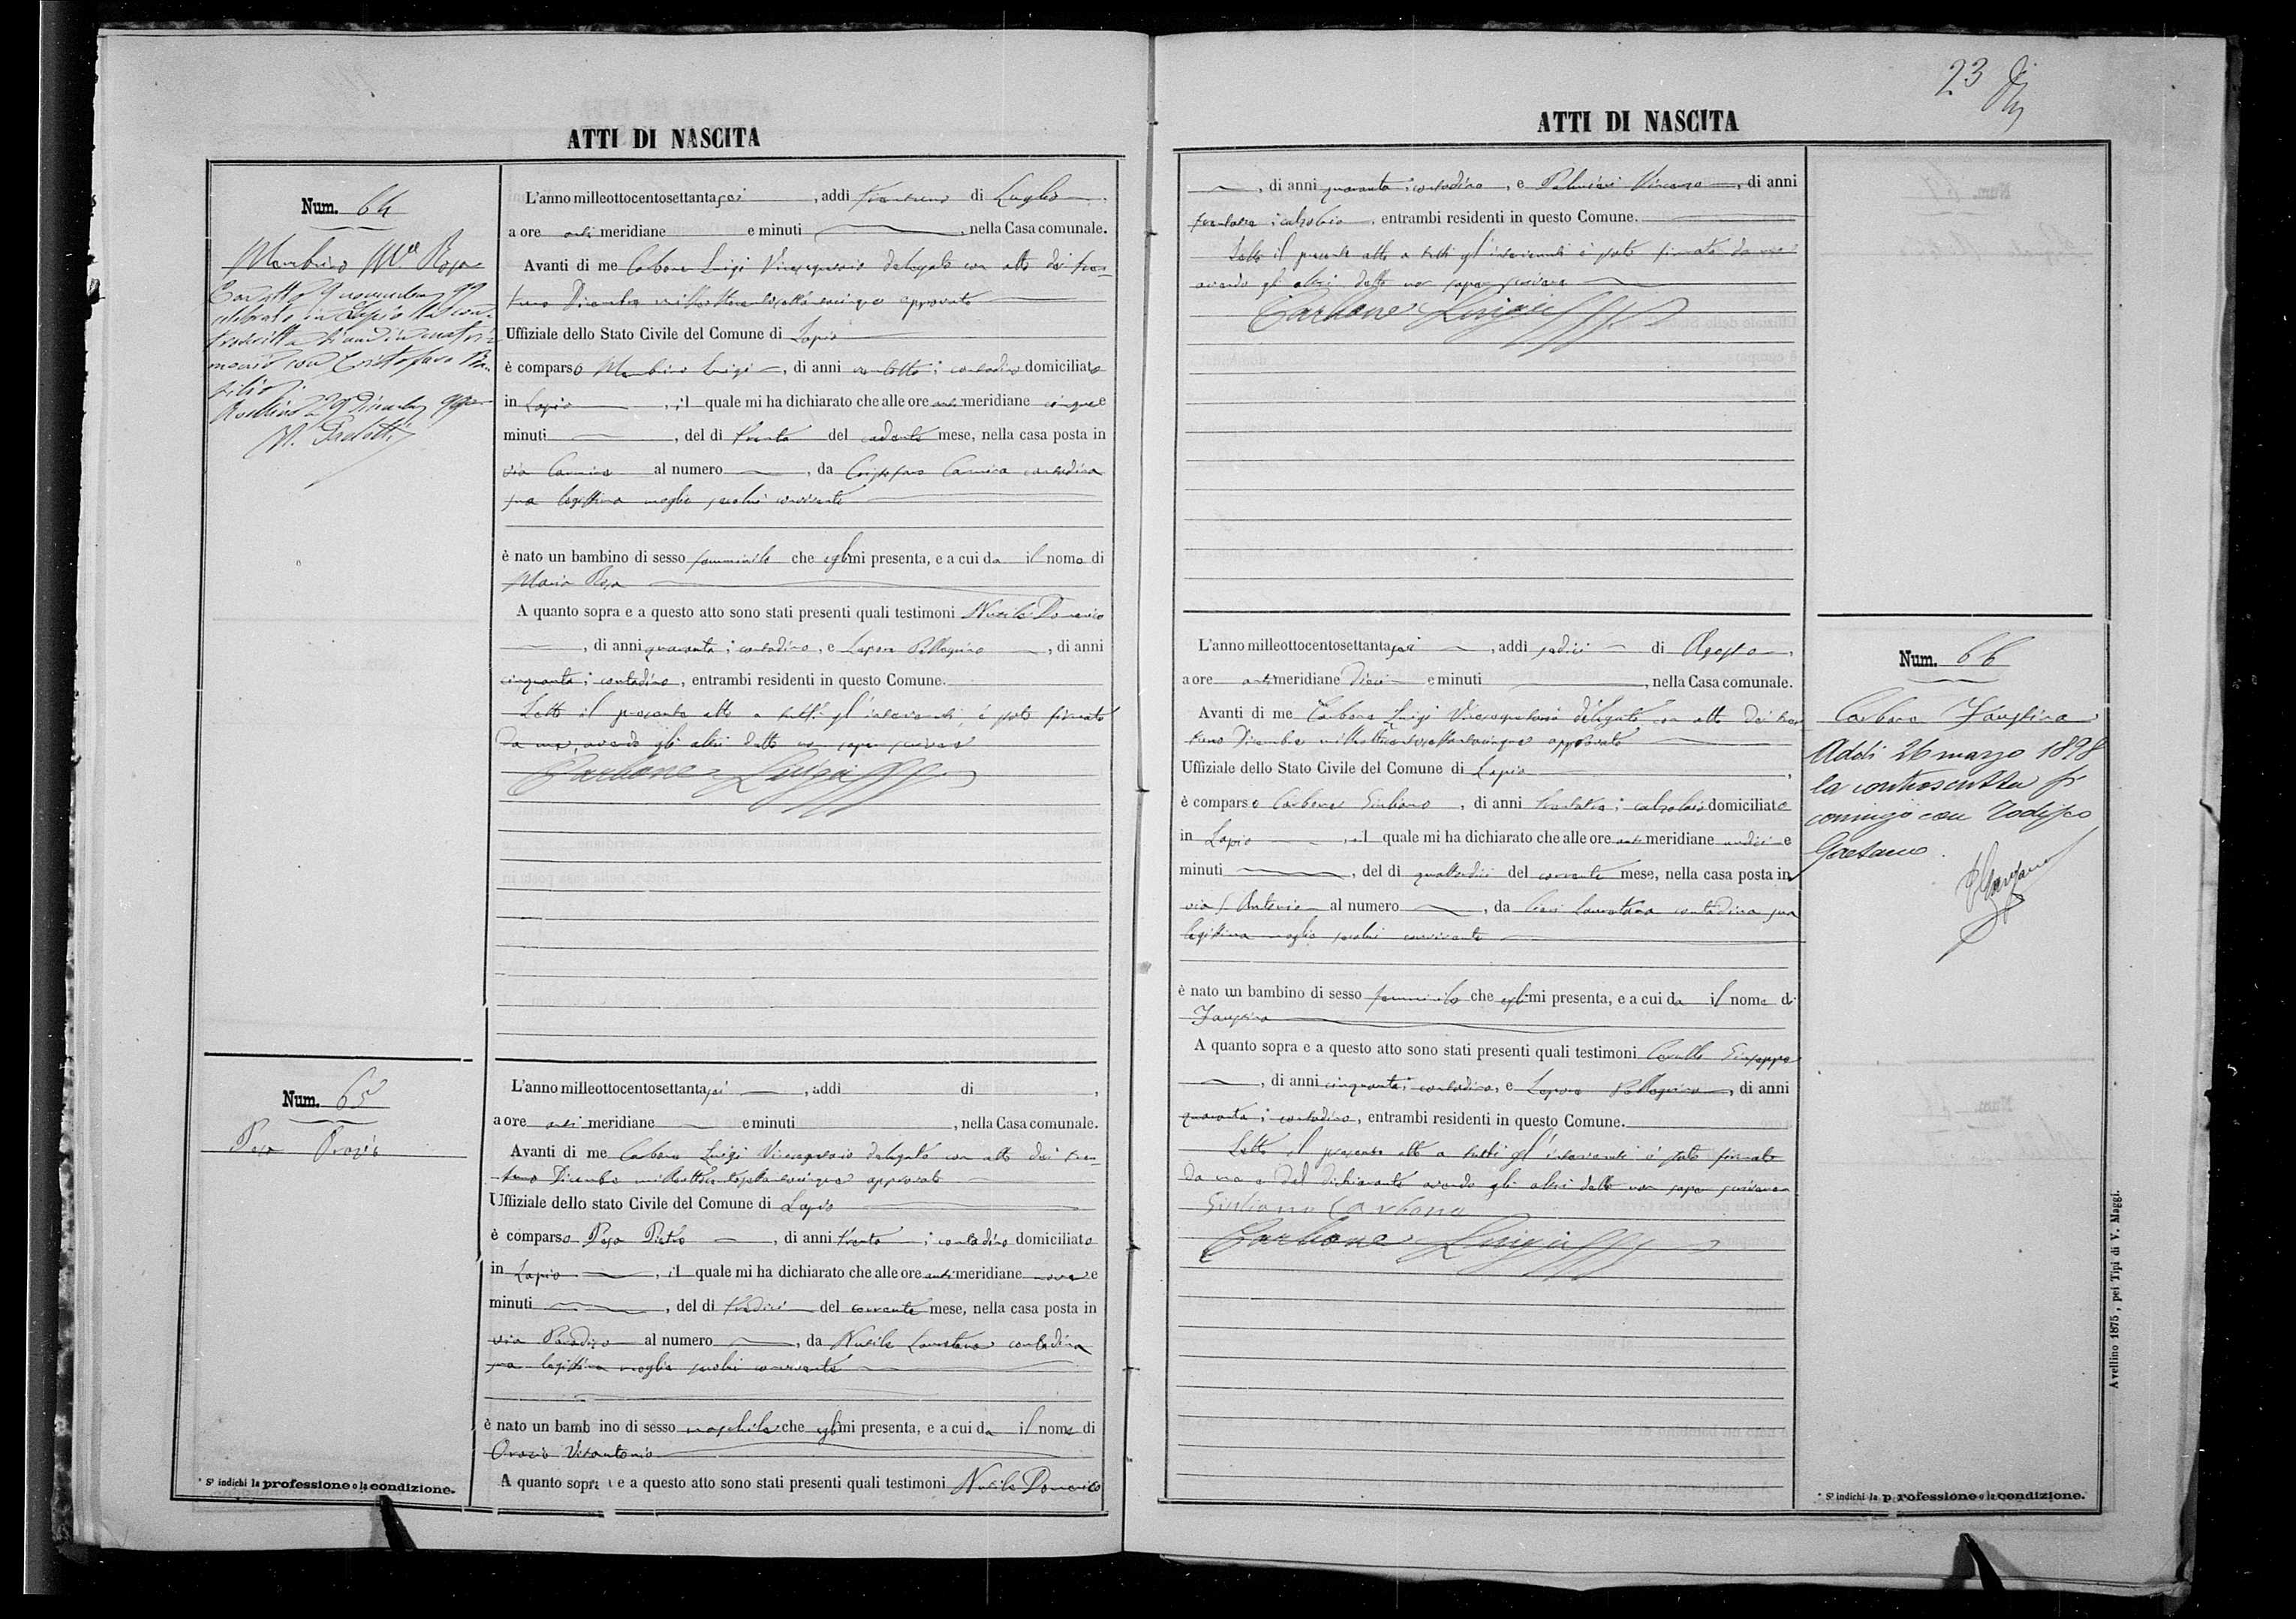 ATTI DI NASCITA
Num. 64
Rosa
L'anno milleottocentosettantasei, addi trentuno di Luglio
a ore anti meridiane e minuti, nella Casa comunale.
Avanti di me Carbone Luigi Vicesegretario delegato con atto dei tren-
tuno Dicembre milleottocentosettantacinque approvato
Uffiziale dello Stato Civile del Comune di Lapio
è comparso Luigi, di anni ventotto; contadino domiciliato
in Lapio, il quale mi ha dichiarato che alle ore anti meridiane cinque e
minuti, del di trenta del cadente mese, nella casa posta in
via al numero, da contadina
sua legittima moglie seco lui convivente
è nato un bambino di sesso femminile che egli mi presenta, e a cui da il nome di
Maria Rosa
A quanto sopra e a questo atto sono stati presenti quali testimoni Domenico
, di anni quaranta; contadino, e Lepore Pellegrino, di anni
cinquanta; contadino, entrambi residenti in questo Comune.
Letto il presente atto a tutti gl'intervenuti, è stato firmato
da me, avendo gli altri detto non saper scrivere
Carbone Luigi
Num. 65
Orazio
L'anno milleottocentosettantasei, addi di
a ore anti meridiane e minuti, nella Casa comunale.
Avanti di me Carbone Luigi Vicesegretario delegato con atto dei tren-
tuno Dicembre milleottocentosettantacinque approvato
Uffiziale dello stato Civile del Comune di Lapio
è comparso Pietro, di anni trenta; contadino domiciliato
in Lapio, il quale mi ha dichiarato che alle ore anti meridiane nove e
minuti, del di tredici del corrente mese, nella casa posta in
via Paradiso al numero, da Lauretana contadina
sua legittima moglie seco lui convivente
è nato un bambino di sesso maschile che egli mi presenta, e a cui da il nome di
Orazio Vitantonio
A quanto sopra e a questo atto sono stati presenti quali testimoni Domenico
* Si indichi la professione o la condizione.
23
ATTI DI NASCITA
, di anni quaranta; contadino, e Palmieri Vincenzo, di anni
trentatre; calzolaio, entrambi residenti in questo Comune.
Letto il presente atto a tutti gl'intervenuti è stato firmato da me
avendo gli altri detto non saper scrivere
Carbone Luigi
L'anno milleottocentosettantasei, addi sedici di Agosto,
a ore anti meridiane Dieci e minuti, nella Casa comunale.
Avanti di me Carbone Luigi Vicesegretario delegato con atto dei tren
tuno Dicembre milleottocentosettantacinque approvato
Uffiziale dello Stato Civile del Comune di Lapio
è comparso Carbone Giuliano, di anni trentatre; calzolaio domiciliato
in Lapio, il quale mi ha dichiarato che alle ore anti meridiane undici e
minuti, del di quattordici del corrente mese, nella casa posta in
via S. Antonio al numero, da Lauretana contadina sua
legittima moglie seco lui convivente
è nato un bambino di sesso femminile che egli mi presenta, e a cui da il nome di
Faustina
A quanto sopra e a questo atto sono stati presenti quali testimoni Giuseppe
, di anni cinquanta; contadino, e Lepore Pellegrino, di anni
quaranta; contadino, entrambi residenti in questo Comune.
Letto il presente atto a tutti gl'intervenuti è stato firmato
da me e dal dichiarante avendo gli altri detto non saper scrivere
Giuliano Carbone
Carbone Luigi
Num. 66
Carbone Faustina
Addi 26 marzo 1898
la controscritta si
coniugò con Todisco
Gaetano.
* Si indichi la professione o la condizione.
Avellino 1875, pei Tipi di V. Maggi.